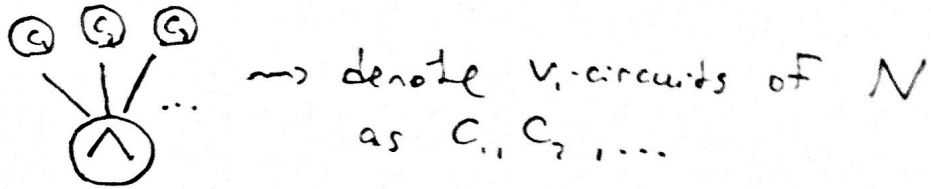 C₁ C₂ C₃
...
∧
⇝ denote V.-circuits of N
as C₁, C₂, ...